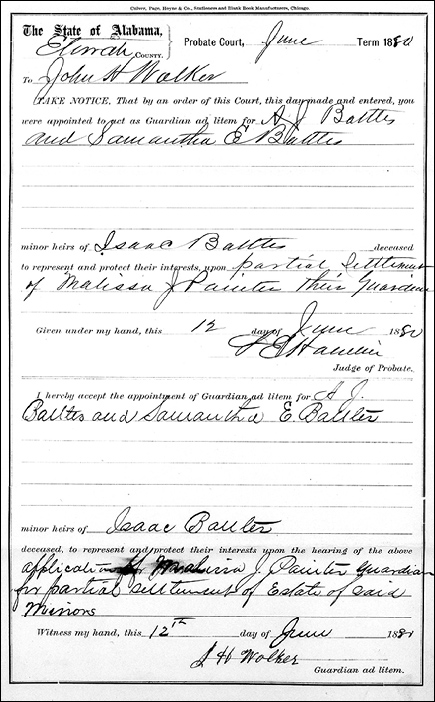 Culver, Page, Hoyne & Co., Stationers and Blank Book Manufacturers, Chicago.
The State of Alabama,
Etowah COUNTY.
Probate Court, June Term 1880
To John H Walker
TAKE NOTICE, That by an order of this Court, this day made and entered, you
were appointed to act as Guardian ad litem for A. J. Battles
and Samantha E Battles
minor heirs of Isaac Battles deceased
to represent and protect their interests, upon partial Settlement
of Malissa J Painter their Guardian
Given under my hand, this 12 day of June 1880
Judge of Probate.
I hereby accept the appointment of Guardian ad litem for A J.
Battles and Samantha E. Battles
minor heirs of Isaac Battles
deceased, to represent and protect their interests upon the hearing of the above
application of Malissa J. Painter Guardian
for partial settlement of Estate of said
Minors
Witness my hand, this 12th day of June 1880
J H Walker
Guardian ad litem.